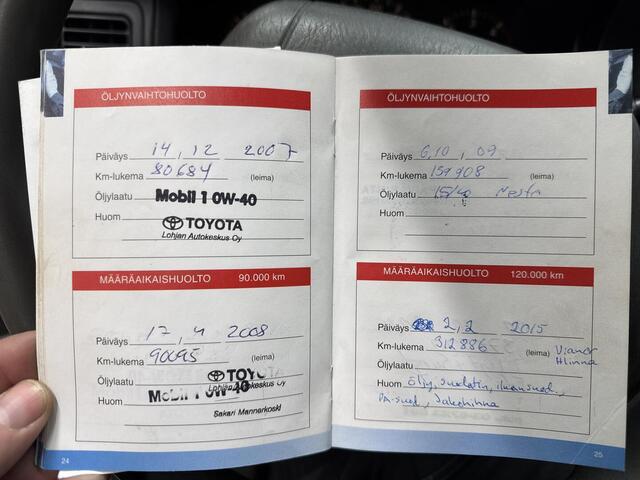 ÖLJYNVAIHTOHUOLTO
Päiväys 14, 12 2007
Km-lukema 80684 (leima)
Öljylaatu Mobil 1 0W-40
Huom
TOYOTA
Lohjan Autokeskus Oy
MÄÄRÄAIKAISHUOLTO 90.000 km
Päiväys 17, 4 2008
Km-lukema 90095 (leima)
Öljylaatu
Lohjan Autokeskus Oy
Huom Mobil 1 0W-40
Sakari Mannerkoski
24
ÖLJYNVAIHTOHUOLTO
Päiväys 6,10 , 09
Km-lukema 151908 (leima)
Öljylaatu 15/40 Neste
Huom
MÄÄRÄAIKAISHUOLTO 120.000 km
Päiväys 2,2 2015
Km-lukema 312886 (leima) Vianor
Hinna
Öljylaatu
Huom öljy, suodatin, ilmansuod.,
PA-suod., Jakohihna
25